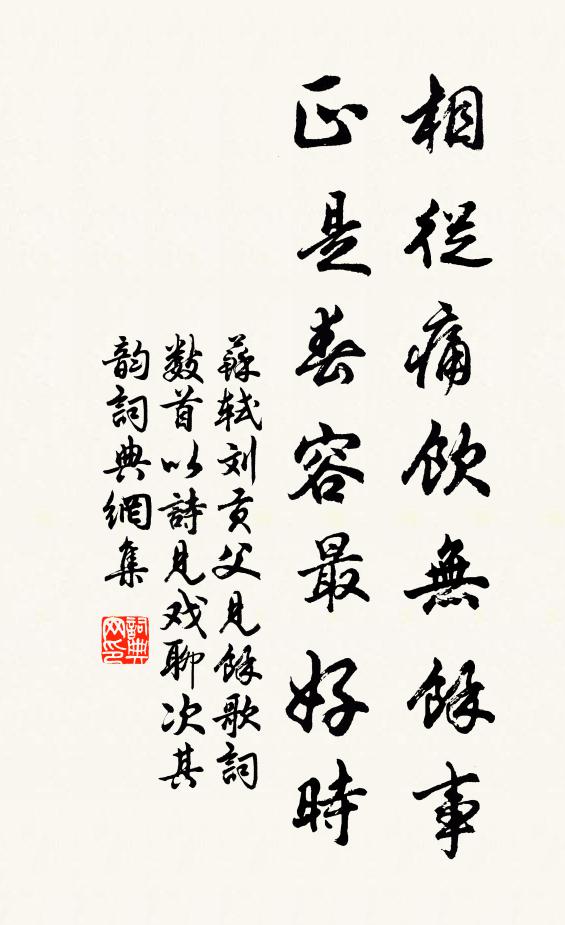 相從痛飲無餘事
正是春容最好時
蘇軾刘貢父見餘歌詞
數首以詩見戏聊次其
韵詞典網集
詞典网印